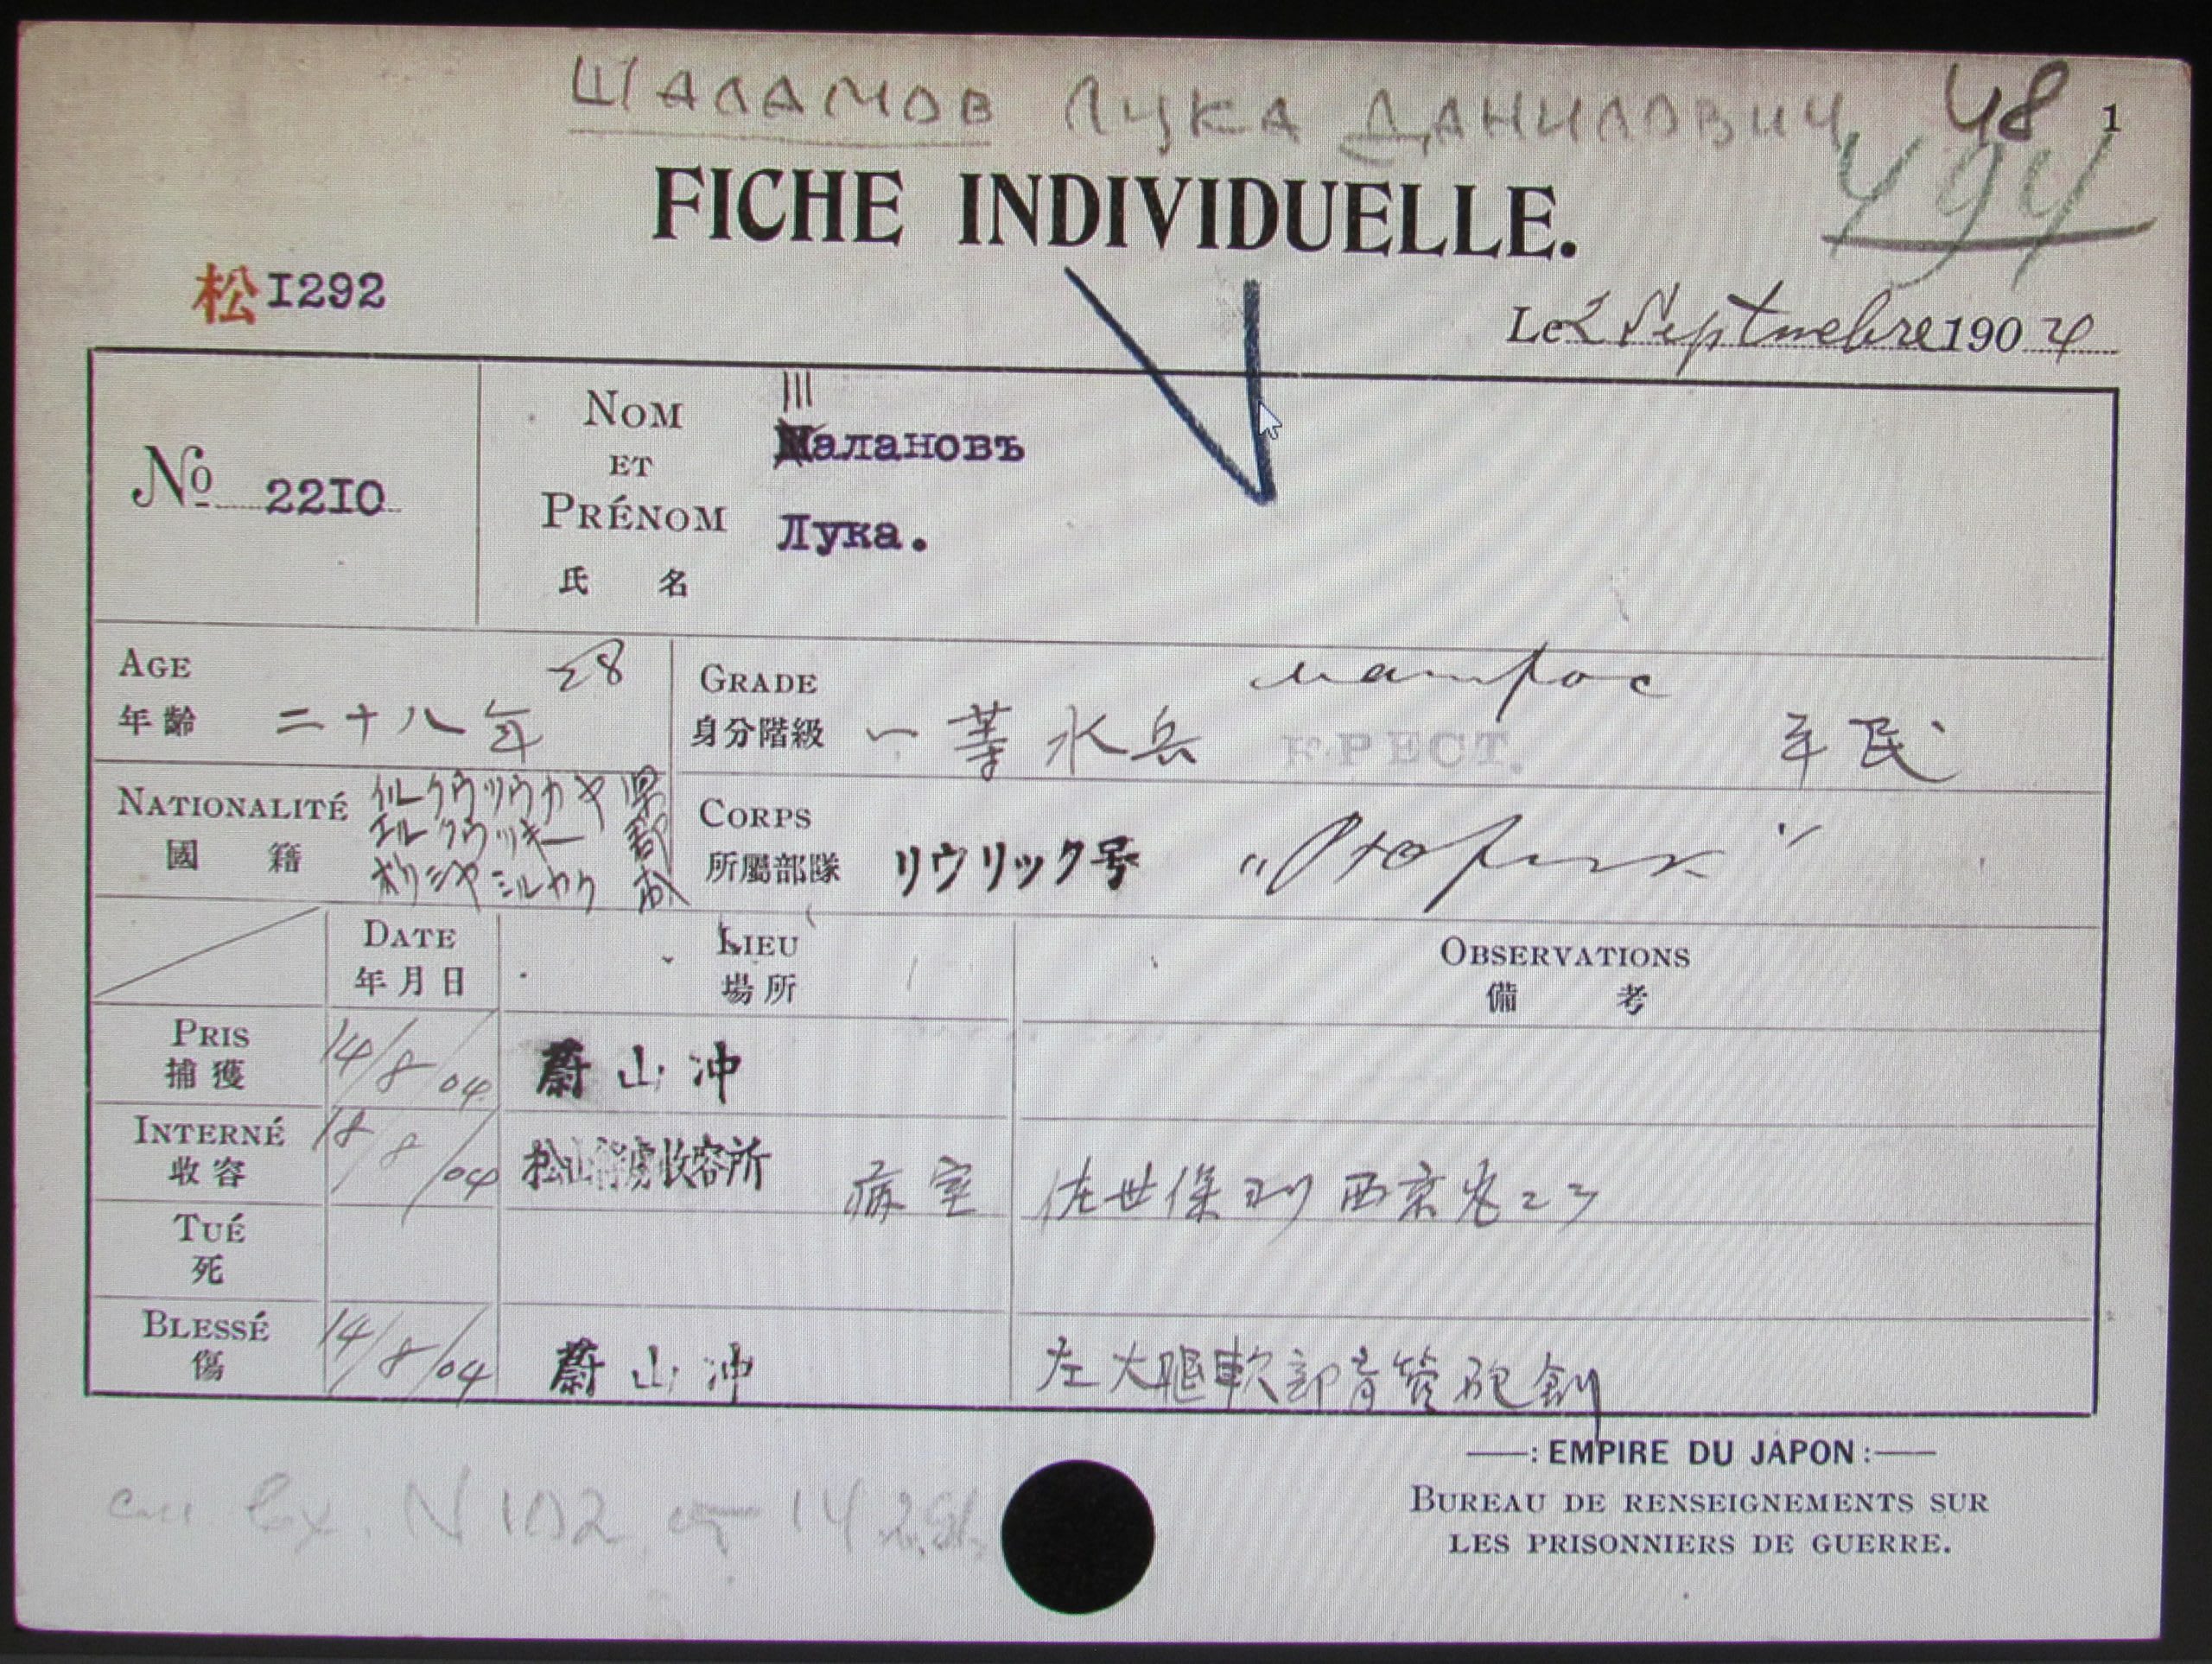 ШАЛАМОВ ЛУКА ДАНИЛОВИЧ 48 1
494
FICHE INDIVIDUELLE.
松 I292
Le 2 Septembre 1904
No 22IO
NOM ET PRÉNOM
氏名
Ш
Малановъ
Лука.
AGE 28
年齡 二十八年
GRADE матрос
身分階級 一等水兵 КРЕСТ. 平民
NATIONALITÉ
國籍
イルクウツウカヤ県
エルクウツキー郡
CORPS
所屬部隊 リウリック号 "Рюрик"
DATE
年月日
LIEU
場所
OBSERVATIONS
備考
PRIS
捕獲
14/8/04 蔚山沖
INTERNÉ
收容
18/8/04 松山俘虜收容所 病室 佐世保ヨリ西京丸ニテ
TUÉ
死
BLESSÉ
傷
14/8/04 蔚山沖 左大腿軟部盲管砲創
: EMPIRE DU JAPON :
BUREAU DE RENSEIGNEMENTS SUR
LES PRISONNIERS DE GUERRE.
см. вх. N 102 от 14